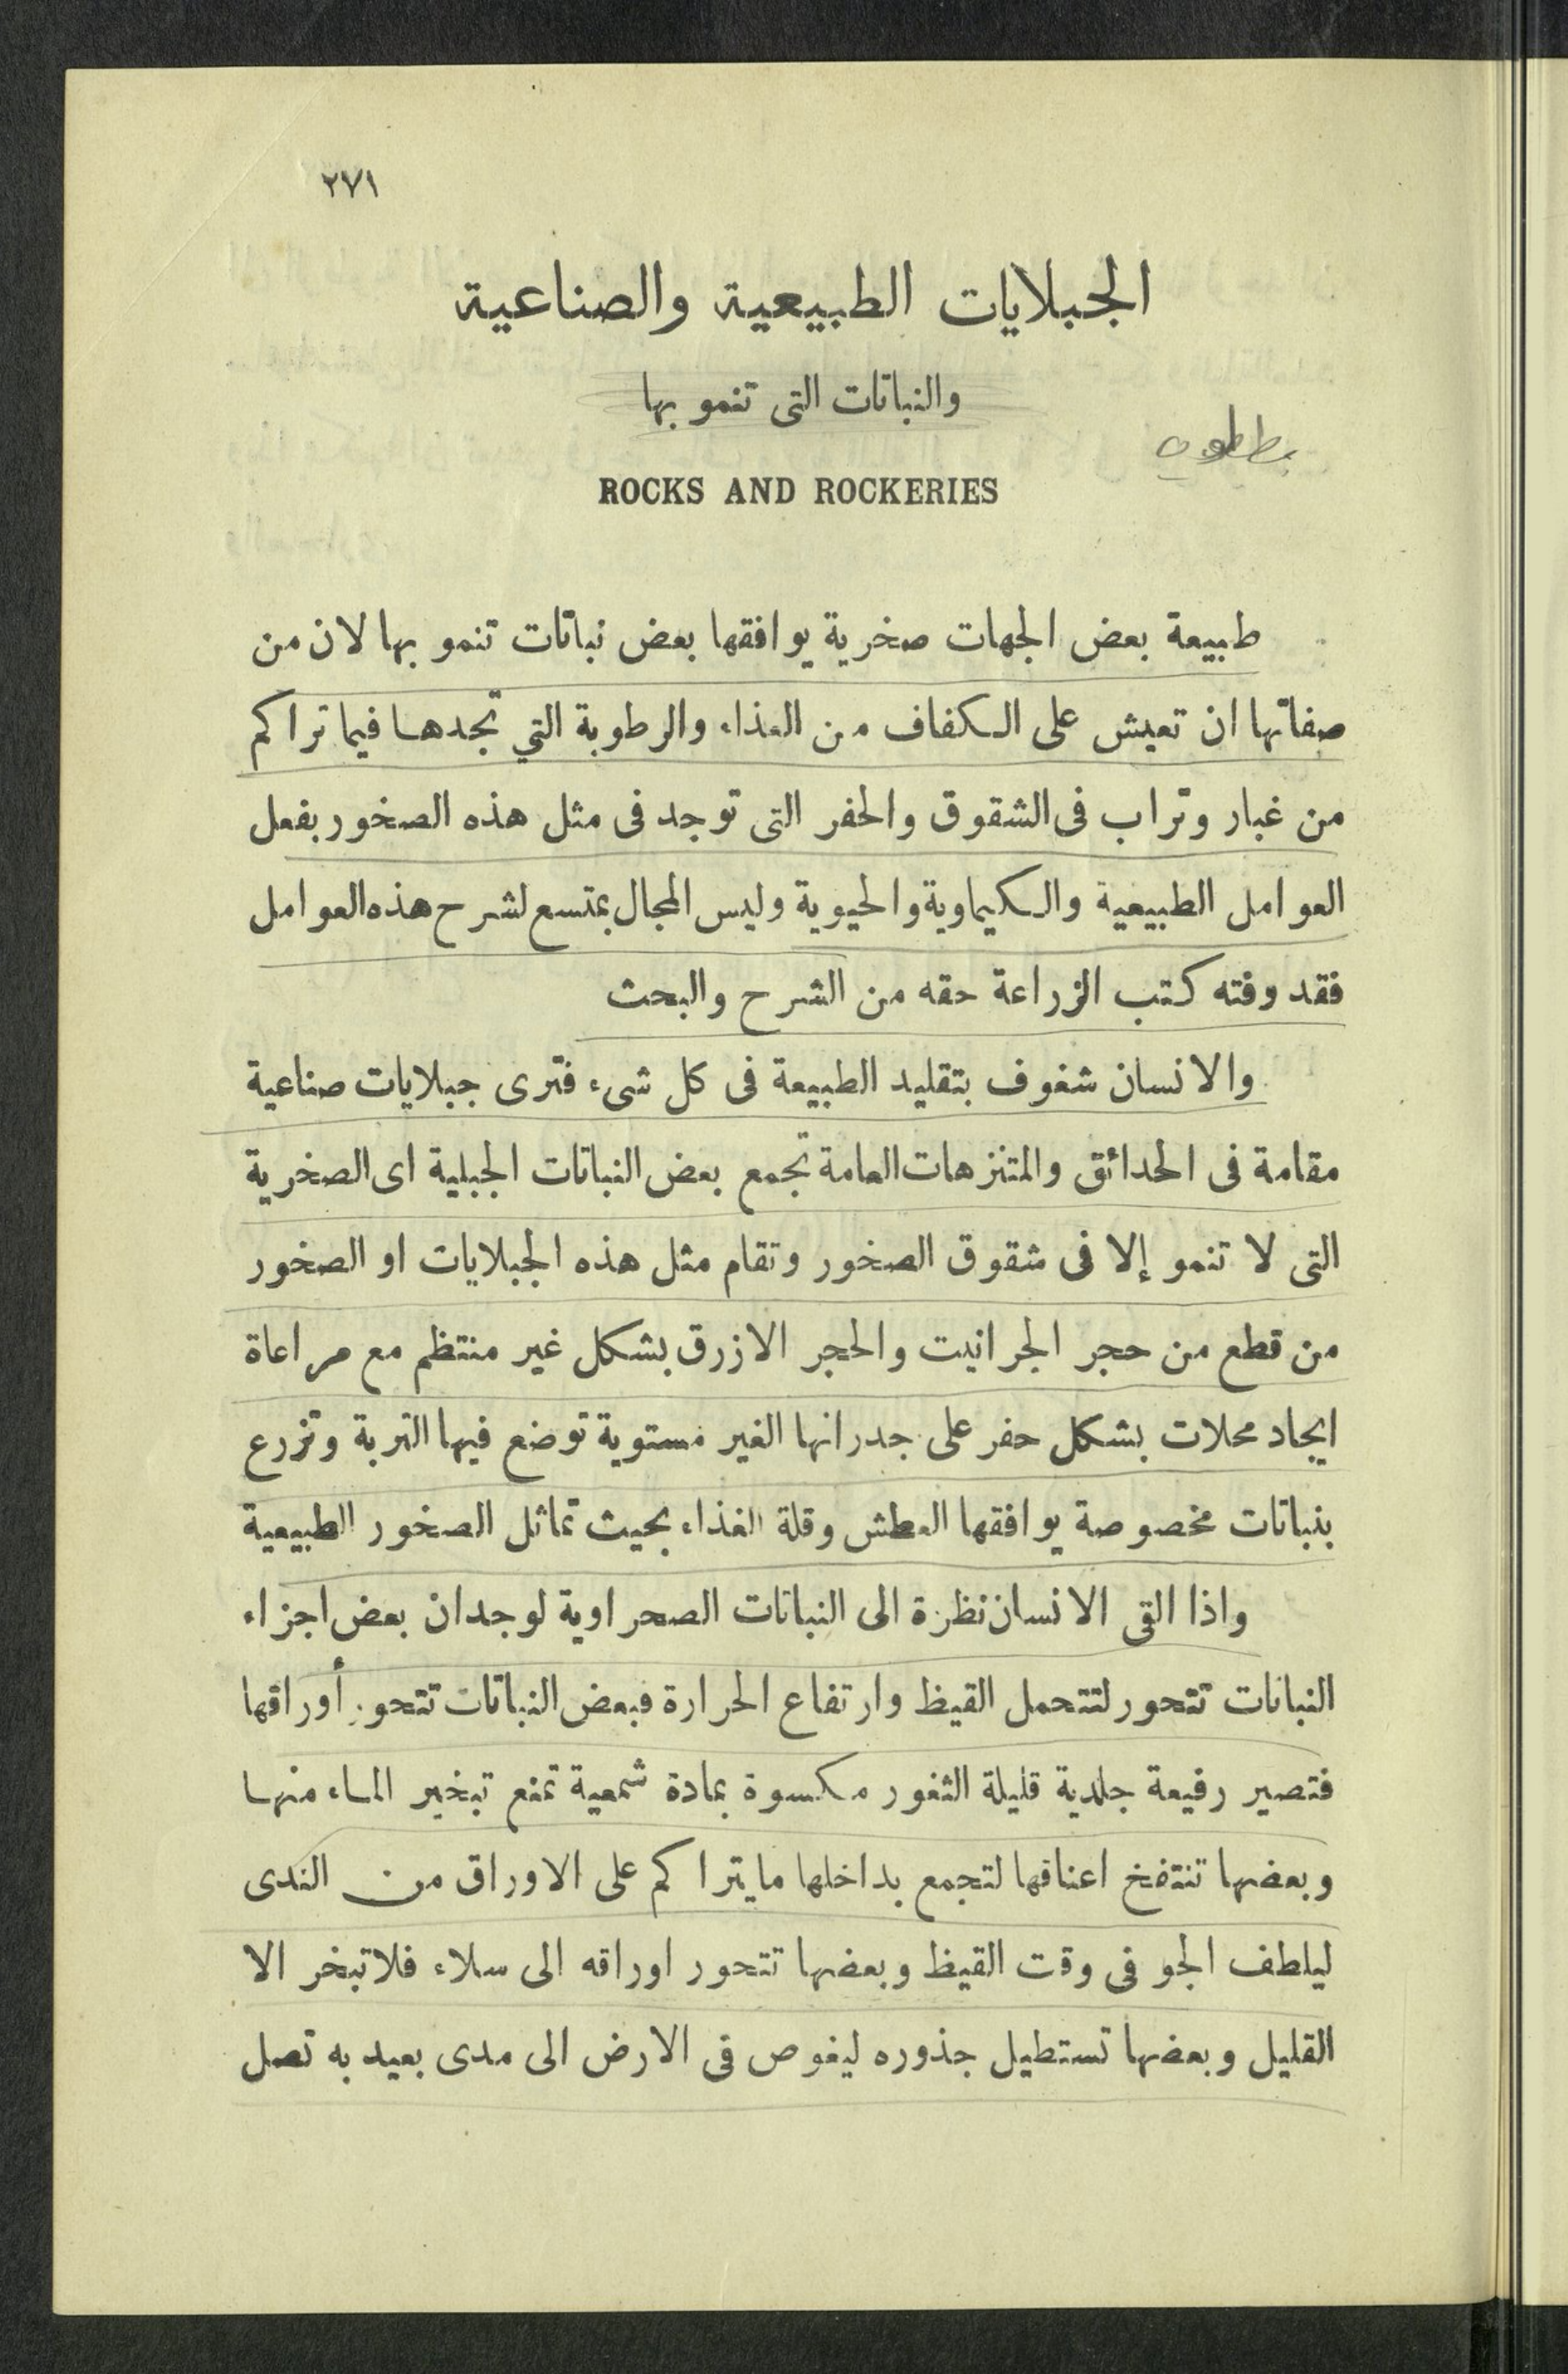 ٢٧١
الجبلايات الطبيعية والصناعية
والنباتات التى تنمو بها
ROCKS AND ROCKERIES
طبيعة بعض الجهات صخرية يوافقها بعض نباتات تنمو بها لان من
صفاتها ان تعيش على الكفاف من الغذاء والرطوبة التي تجدها فيما تراكم
من غبار وتراب فى الشقوق والحفر التى توجد فى مثل هذه الصخور بفعل
العوامل الطبيعية والكيماوية والحيوية وليس المجال بمتسع لشرح هذه العوامل
فقد وفته كتب الزراعة حقه من الشرح والبحث
والانسان شغوف بتقليد الطبيعة فى كل شىء فترى جبلايات صناعية
مقامة فى الحدائق والمتنزهات العامة تجمع بعض النباتات الجبلية اى الصخرية
التى لا تنمو إلا فى شقوق الصخور وتقام مثل هذه الجبلايات او الصخور
من قطع من حجر الجرانيت والحجر الازرق بشكل غير منتظم مع مراعاة
ايجاد محلات بشكل حفر على جدرانها الغير مستوية توضع فيها التربة وتزرع
بنباتات مخصوصة يوافقها العطش وقلة الغذاء بحيث تماثل الصخور الطبيعية
واذا القى الانسان نظرة الى النباتات الصحراوية لوجد ان بعض اجزاء
النباتات تتحور لتتحمل القيظ وارتفاع الحرارة فبعض النباتات تتحور أوراقها
فتصير رفيعة جلدية قليلة الثغور مكسوة بمادة شمعية تمنع تبخير الماء منها
وبعضها تنتفخ اعناقها لتجمع بداخلها ما يتراكم على الاوراق من الندى
ليلطف الجو فى وقت القيظ وبعضها تتحور اوراقه الى سلاء فلا تبخر الا
القليل وبعضها تستطيل جذوره ليغوص فى الارض الى مدى بعيد به تصل